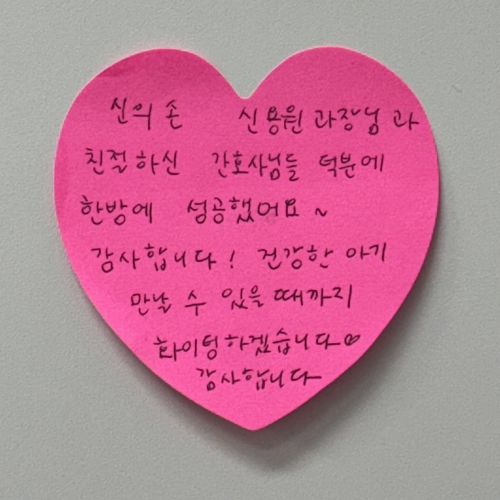 신의 손 신용원 과장님 과
친절하신 간호사님들 덕분에
한방에 성공했어요 ~
감사합니다! 건강한 아기
만날 수 있을 때까지
화이팅하겠습니다♡
감사합니다